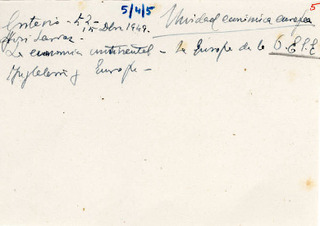 5/4/5
5
Unidad económica europea
Criterio - 52 -
15 Dbre 1949.
La economía continental - La Europa de la O.E.C.E
Inglaterra y Europa -